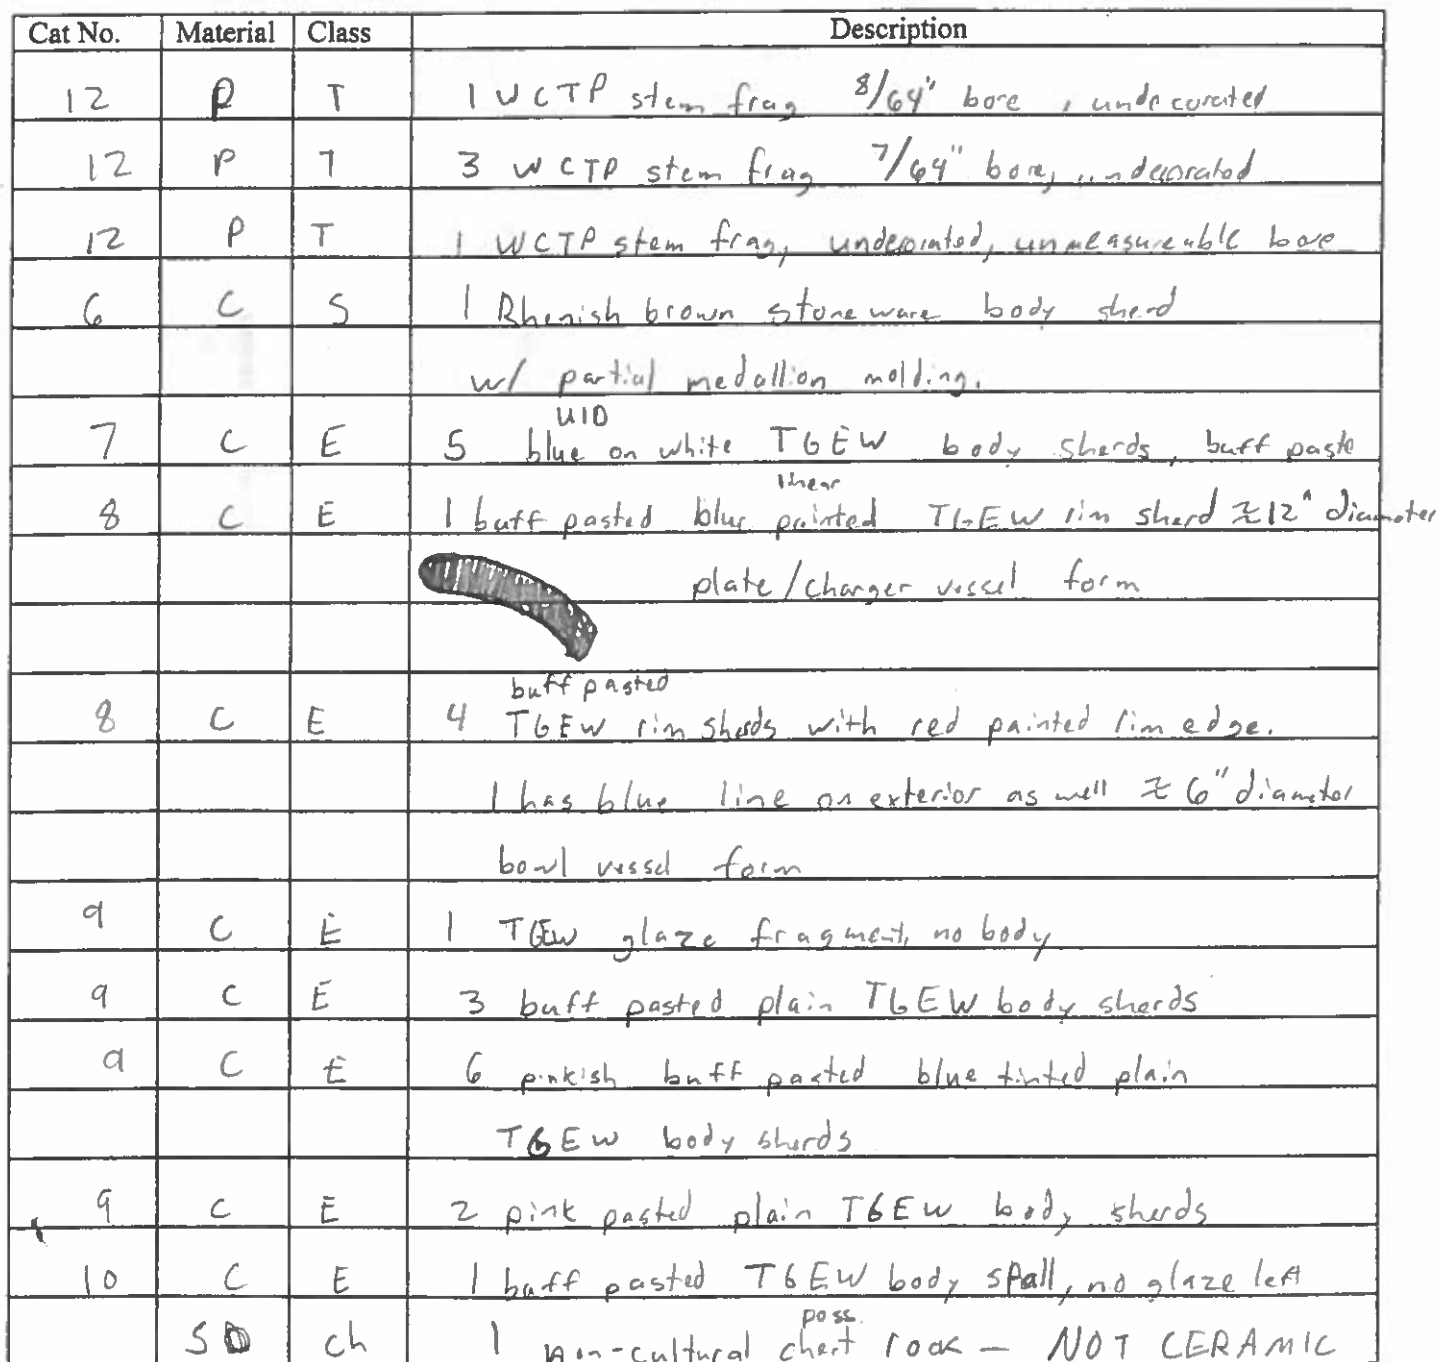 Cat No. Material Class Description
12 P T 1 WCTP stem frag 8/64" bore, undecorated
12 P T 3 WCTP stem frag 7/64" bore, undecorated
12 P T 1 WCTP stem frag, undecorated, unmeasureable bore
6 C S 1 Rhenish brown stoneware body sherd
w/ partial medallion molding.
UID
7 C E 5 blue on white TGEW body sherds, buff paste
linear
8 C E 1 buff pasted blue painted TGEW rim sherd ≈12" diameter
plate/charger vessel form
buff pasted
8 C E 4 TGEW rim sherds with red painted rim edge.
1 has blue line on exterior as well ≈ 6" diameter
bowl vessel form
9 C E 1 TGEW glaze fragment, no body
9 C E 3 buff pasted plain TGEW body sherds
9 C E 6 pinkish buff pasted blue tinted plain
TGEW body sherds
9 C E 2 pink pasted plain TGEW body sherds
10 C E 1 buff pasted TGEW body spall, no glaze left
poss.
Ch 1 non-cultural chert rock — NOT CERAMIC